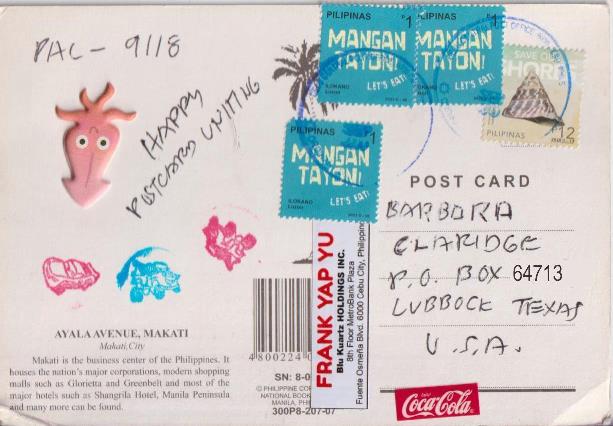 PAC - 9118
HAPPY
POSTCARD UNITING
PILIPINAS ₱1
MANGAN
TAYON!
LET'S EAT!
ILOKANO
Luzon
PILIPINAS 1
MANGAN
TAYON!
LET'S EAT!
ILOKANO
PILIPINAS 1
MANGAN
TAYON!
LET'S EAT!
ILOKANO
Luzon
SAVE OUR
SHORE
PILIPINAS 12
POST CARD
BARBARA
CLARIDGE
P.O. BOX 64713
LUBBOCK TEXAS
U.S.A.
AYALA AVENUE, MAKATI
Makati,City
Makati is the business center of the Philippines. It
houses the nation's major corporations, modern shopping
malls such as Glorietta and Greenbelt and most of the
major hotels such as Shangrila Hotel, Manila Peninsula
and many more can be found.
4800224 0
SN: 8-0
© PHILIPPINE COR
NATIONAL BOOK
MANILA, PHI
300P8-207-07
FRANK YAP YU
Blu Kuartz HOLDINGS INC.
8th Floor MetroBank Plaza
Fuente Osmeña Blvd. 6000 Cebu City, Philippine
Coca-Cola